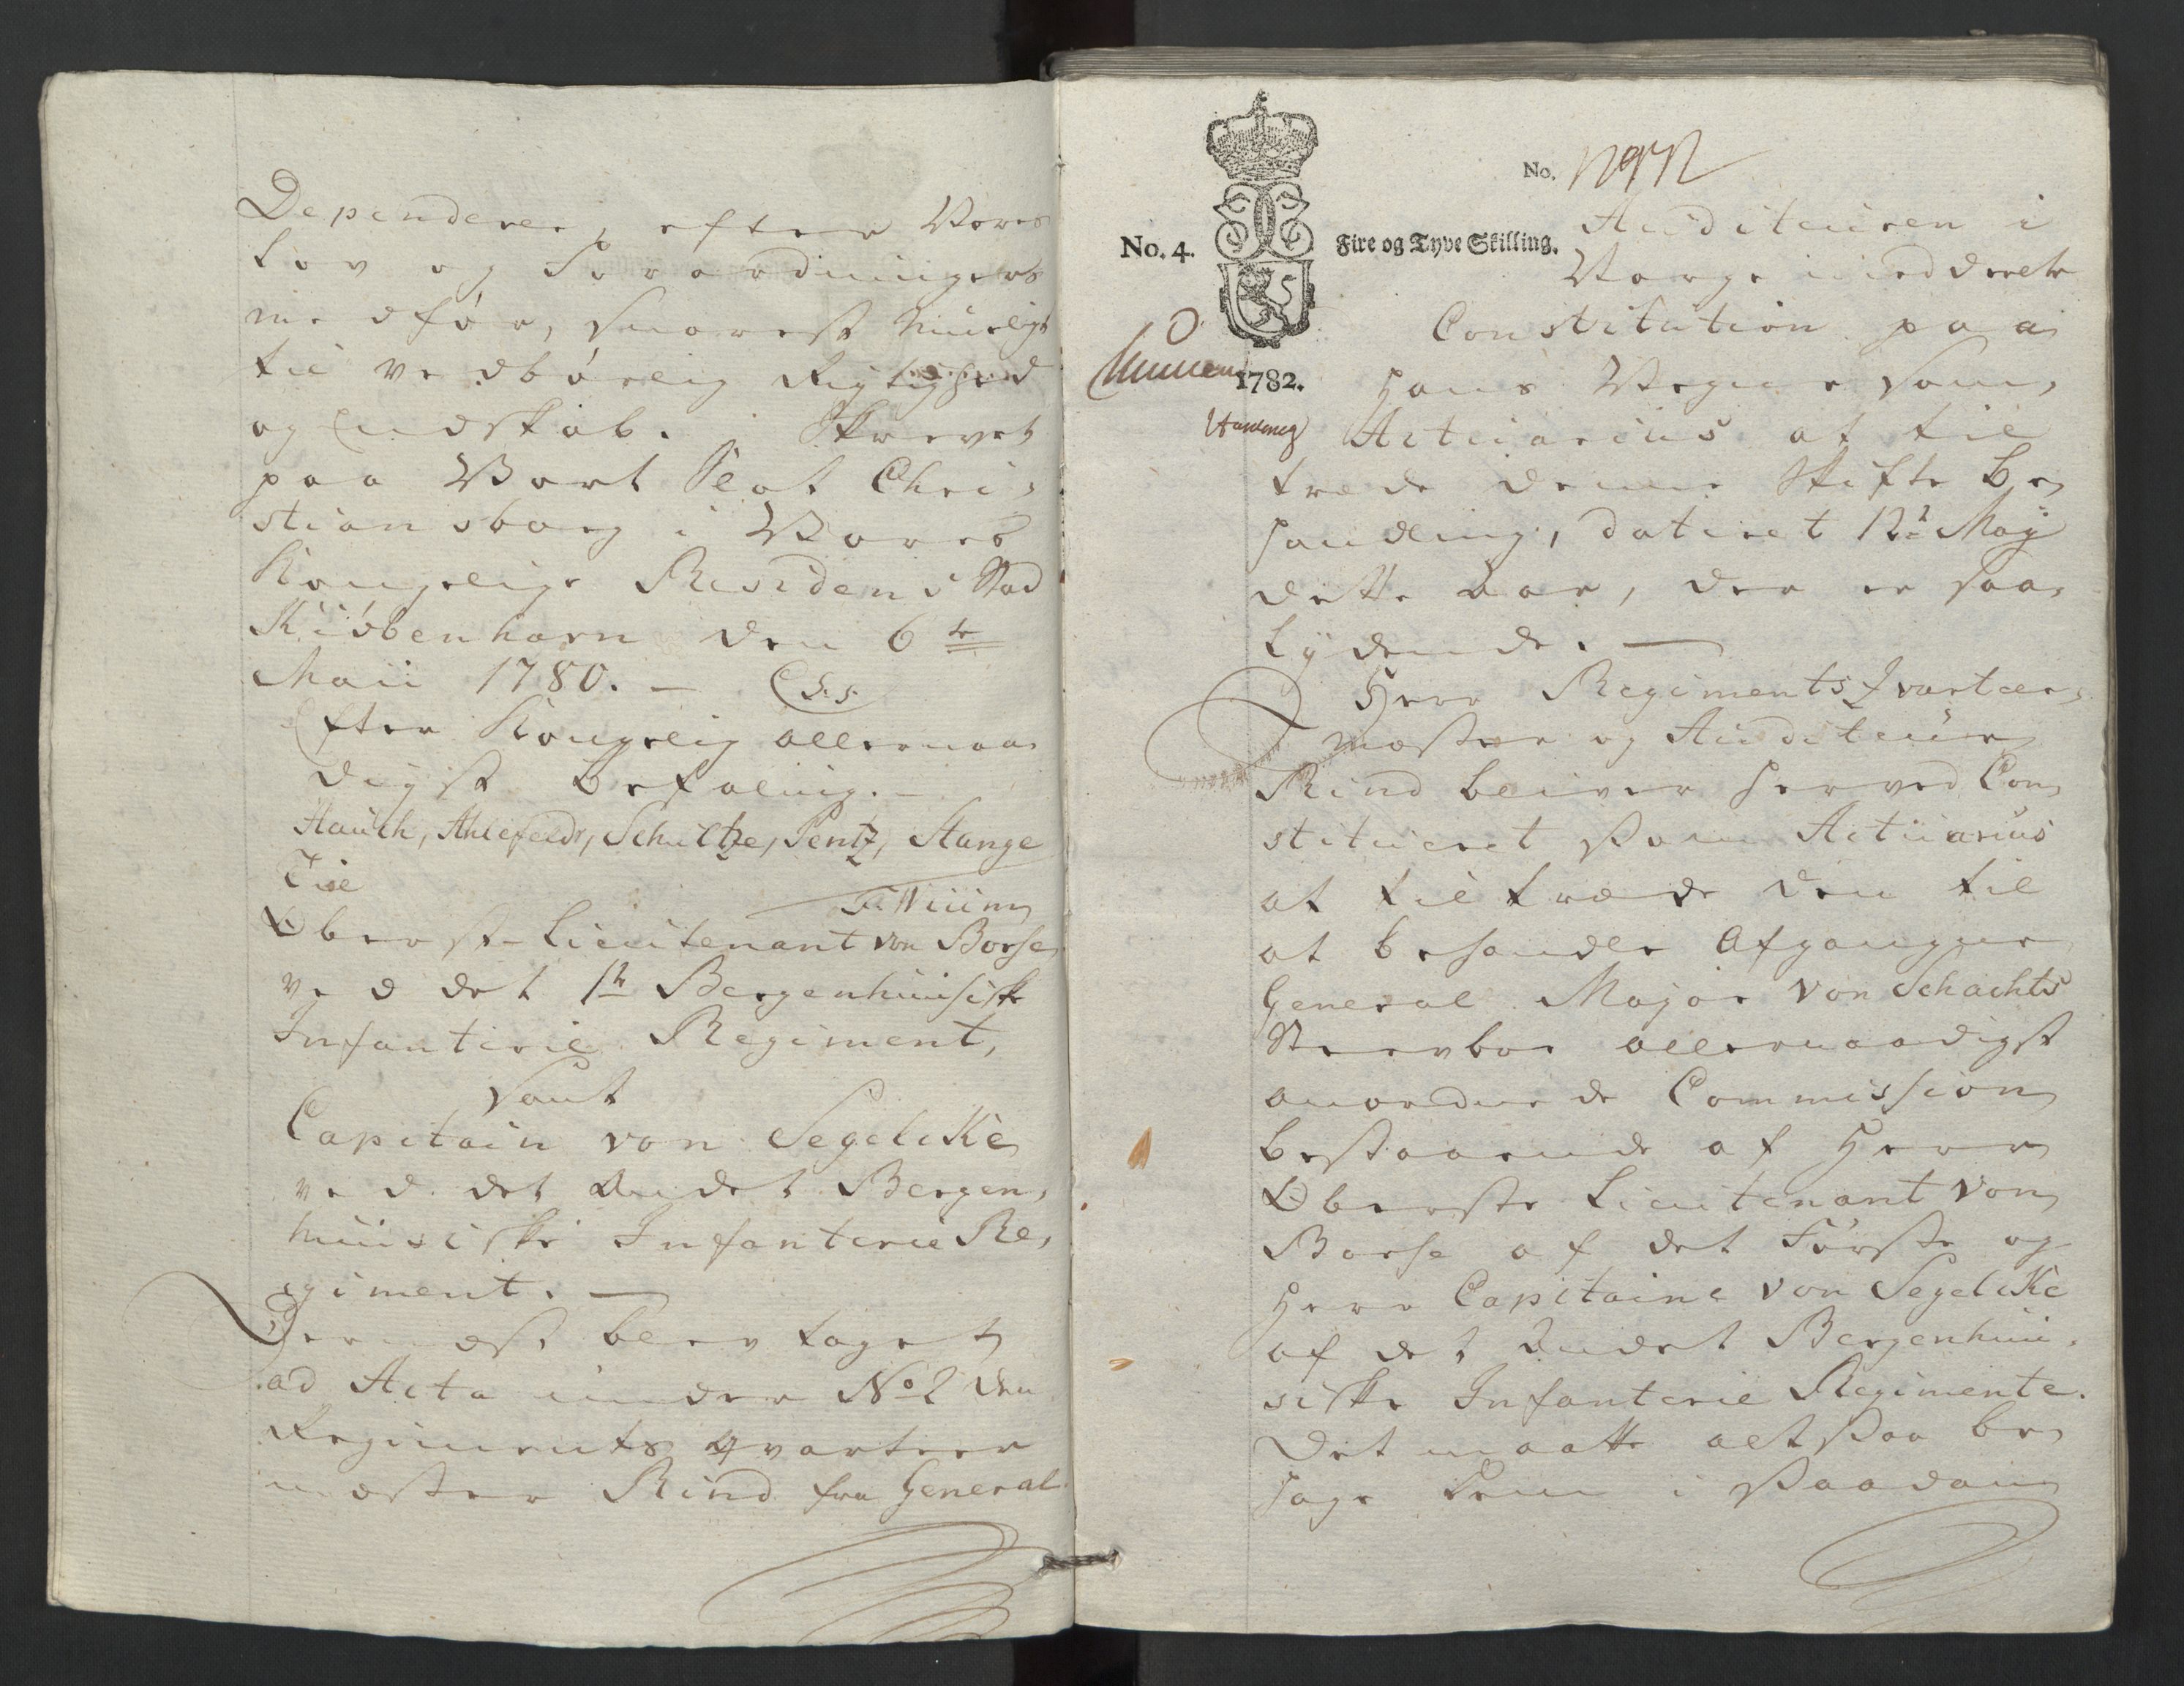 Dependerer, efter Vores
Lov og Forordningers
medför, snarest mueligt
til vedbörlig Rigtighed
og Endskab. Skrevet
paa Vort Slot Chri,
stiansborg i Vores
Kongelige Residens Stad
Kiöbenhavn den 6te
Maii 1780. — L.S.
Efter Kongelig allernaa,
digst Befaling. —
Hauch, Ahlefeldt, Schultze, Sentz, Stange
Til
Oberst-Lieutenant von Borse
ved det 1te Bergenhuusiske
Infanterie Regiment,
samt
Capitain von Segelcke
ved det Andet Bergen,
huusiske Infanterie Re,
giment. —
Dernæst blev taget
ad Acta under No 2 den
Regiments qvarteer
mester Rind fra General
No.
No. 4. Fire og Tyve Skilling.
1782.
Auditeuren i
Norge meddeelte
Constitution paa
Hans Vegne som
Actuarius at til
træde denne Skifte Be,
handling, dateret 12te May
dette Aar, der er saa,
lydende. —
Herr Regimentsqvarteer,
mester og Auditeur
Rind bliver herved Con,
stitueret som Actuarius
at tiltræde den til
at behandle Afgangne
General Major von Schachts
Sterboe allernaadigst
anordnede Commission
bestaaende af Herr
Oberste Lieutenant von
Borse af det Förste og
Herr Capitaine von Segelcke
af det Andet Bergenhuu,
siske Infanterie Regimente.
Det maatte altsaa be,
hage Dem i saadan